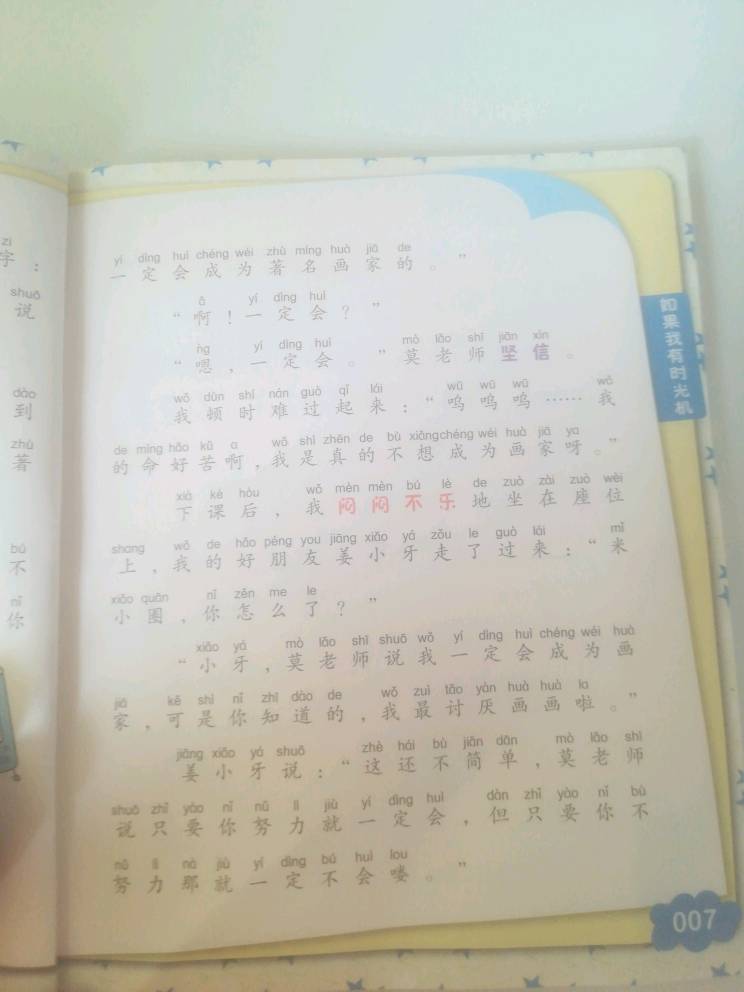 zì
字：
shuō
说
dào
到
zhù
著
bú
不
nǐ
你
yí dìng huì chéng wéi zhù míng huà jiā de
一定会成为著名画家的。”
ō yí dìng huì
“啊！一定会？”
ǹg yí dìng huì mò lǎo shī jiān xìn
“嗯，一定会。”莫老师坚信。
wǒ dùn shí nán guò qǐ lái wū wū wū wǒ
我顿时难过起来：“呜呜呜……我
de mìng hǎo kǔ a wǒ shì zhēn de bù xiǎng chéng wéi huà jiā ya
的命好苦啊，我是真的不想成为画家呀。”
xià kè hòu wǒ mèn mèn bú lè de zuò zài zuò wèi
下课后，我闷闷不乐地坐在座位
shang wǒ de hǎo péng you jiāng xiǎo yá zǒu le guò lái mǐ
上，我的好朋友姜小牙走了过来：“米
xiǎo quān nǐ zěn me le
小圈，你怎么了？”
xiǎo yá mò lǎo shī shuō wǒ yí dìng huì chéng wéi huà
“小牙，莫老师说我一定会成为画
jiā kě shì nǐ zhī dào de wǒ zuì tǎo yàn huà huà la
家，可是你知道的，我最讨厌画画啦。”
jiāng xiǎo yá shuō zhè hái bù jiǎn dān mò lǎo shī
姜小牙说：“这还不简单，莫老师
shuō zhǐ yào nǐ nǔ lì jiù yí dìng huì dàn zhǐ yào nǐ bù
说只要你努力就一定会，但只要你不
nǔ lì nà jiù yí dìng bú huì lou
努力那就一定不会喽。”
如果我有时光机
007